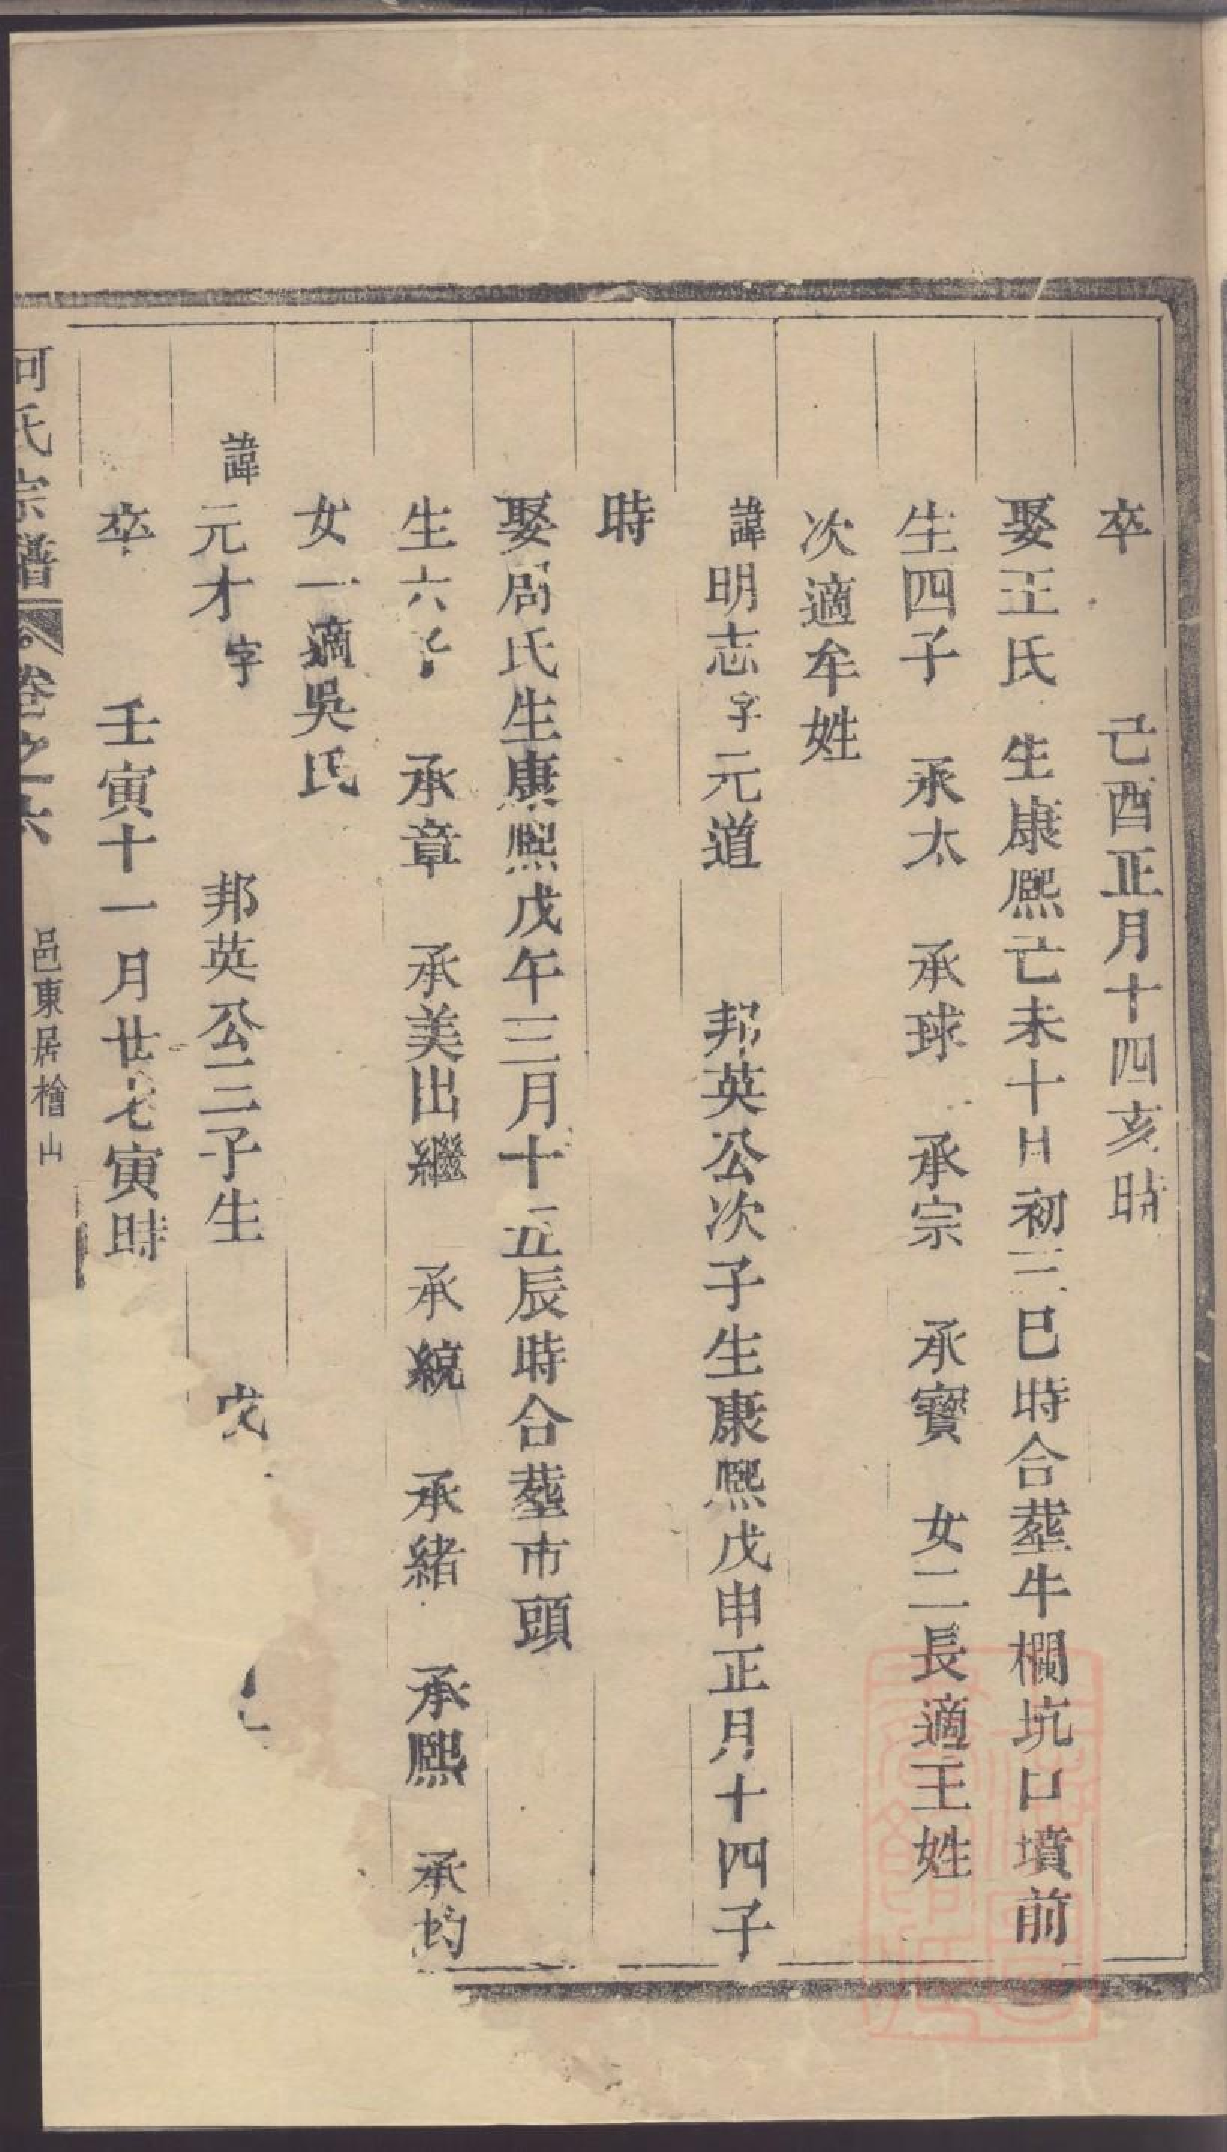 卒 己酉正月十四亥時
娶王氏 生康熙己未十月初三巳時合塟牛欄坑口墳前
生四子 承太 承球 承宗 承寶 女二長適王姓
次適牟姓
諱明志字元道 邦英公次子生康熙戊申正月十四子
時
娶周氏生康熙戊午三月十五辰時合塟市頭
生六子 承章 承美出繼 承統 承緒 承熙 承均
女一適吳氏
諱元才字 邦英公三子生
卒 壬寅十一月廿七寅時
何氏宗譜 卷之六 邑東居檜山